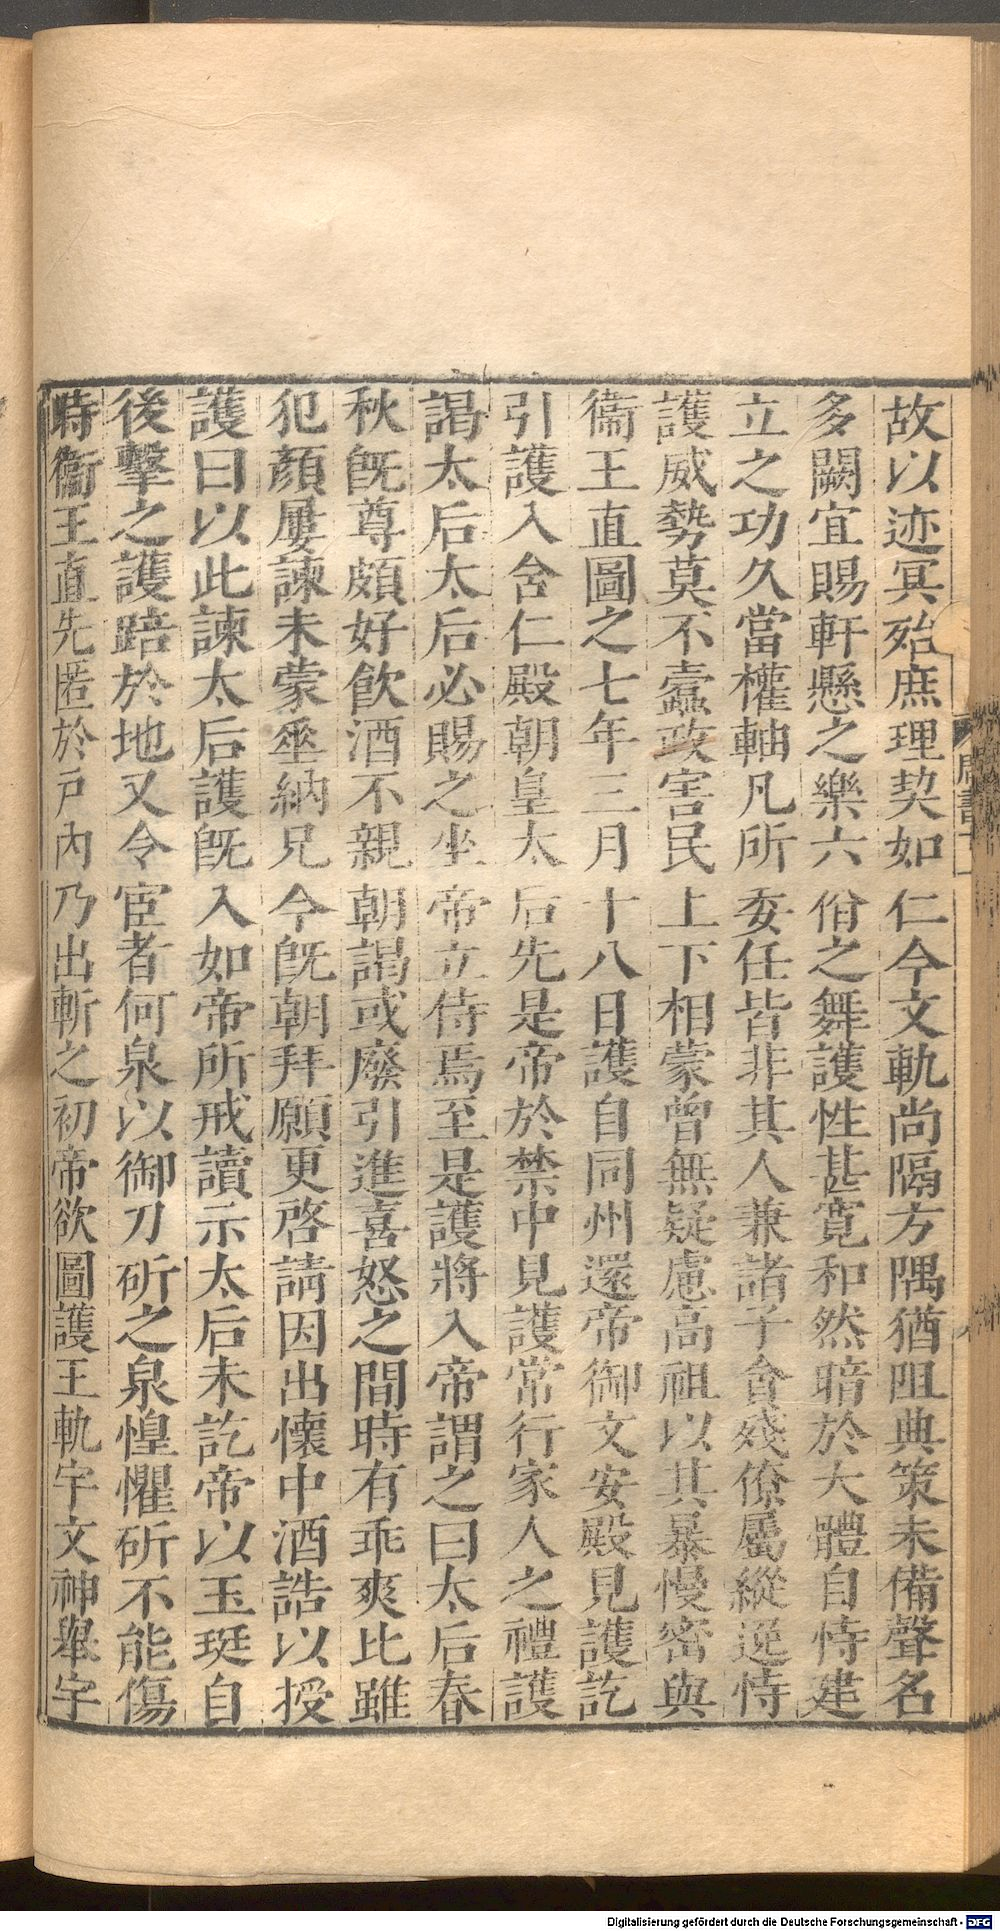 故以迹冥殆庶理契如仁今文軌尚隔方隅猶阻典策未備聲名
多闕宜賜軒懸之樂六佾之舞護性甚寬和然暗於大體自恃建
立之功久當權軸凡所委任皆非其人兼諸子貪殘僚屬縱逸恃
護威勢莫不蠹政害民上下相蒙曾無疑慮高祖以其暴慢密與
衞王直圖之七年三月十八日護自同州還帝御文安殿見護訖
引護入含仁殿朝皇太后先是帝於禁中見護常行家人之禮護
謁太后太后必賜之坐帝立侍焉至是護將入帝謂之曰太后春
秋旣尊頗好飮酒不親朝謁或廢引進喜怒之間時有乖爽比雖
犯顏屢諫未蒙垂納兄今旣朝拜願更啓請因出懷中酒誥以授
護曰以此諫太后護旣入如帝所戒讀示太后未訖帝以玉珽自
後擊之護踣於地又令宦者何泉以御刀斫之泉惶懼斫不能傷
時衞王直先匿於戶內乃出斬之初帝欲圖護王軌宇文神舉宇
Digitalisierung gefördert durch die Deutsche Forschungsgemeinschaft - DFG